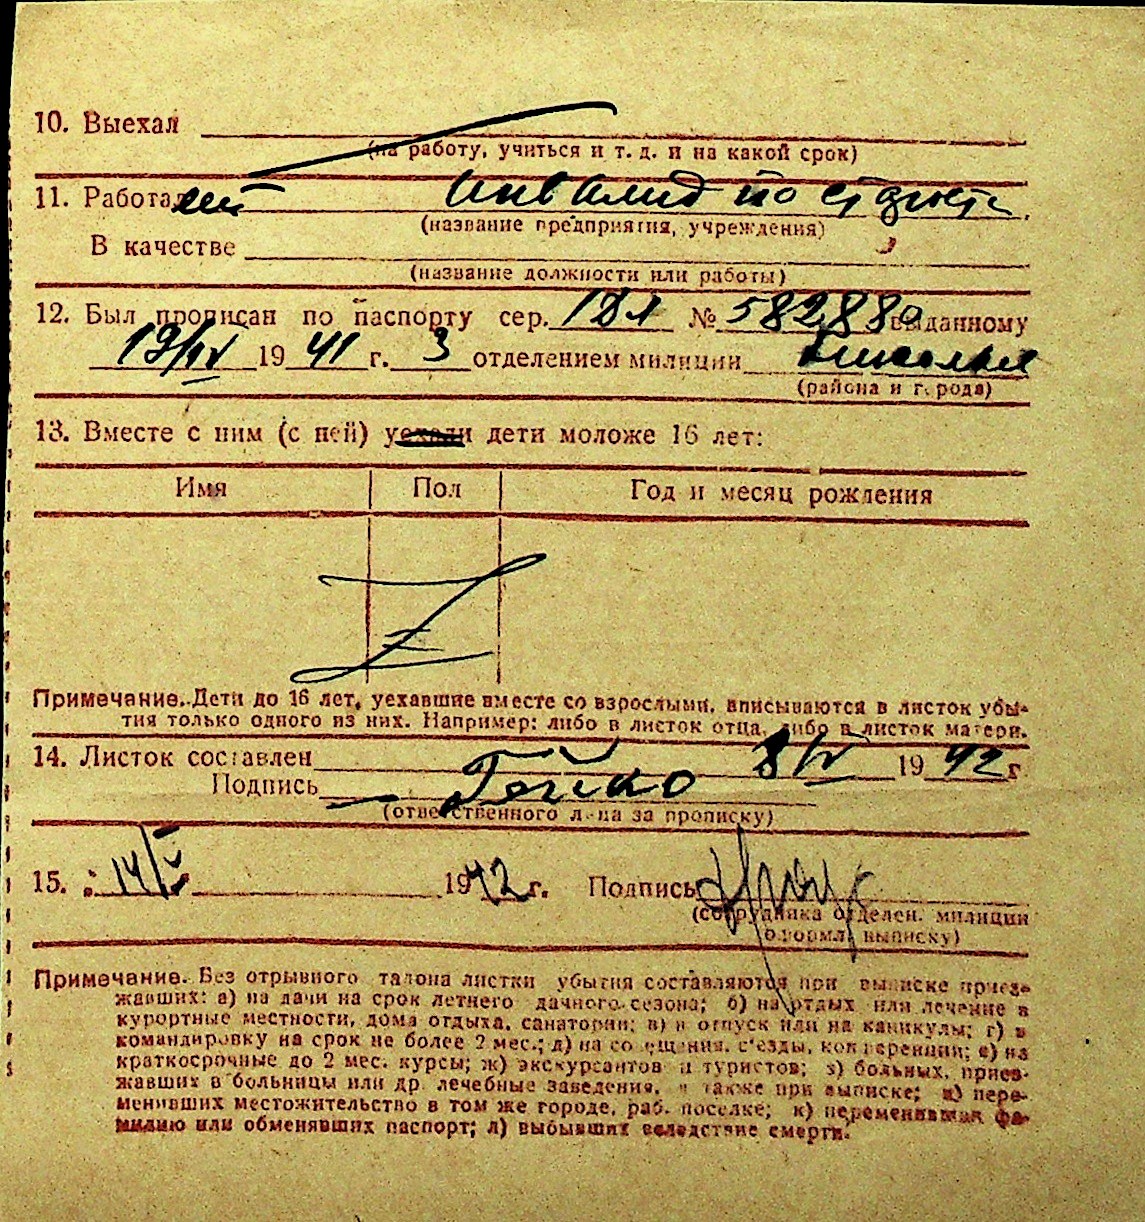 10. Выехал
(на работу, учиться и т. д. и на какой срок)
11. Работал инвалид по
(название предприятия, учреждения)
В качестве
(название должности или работы)
12. Был прописан по паспорту сер. № 582880 выданному
19/IV 1941 г. 3 отделением милиции
(района и города)
13. Вместе с ним (с ней) уехали дети моложе 16 лет:
Имя Пол Год и месяц рождения
Z
Примечание. Дети до 16 лет, уехавшие вместе со взрослыми, вписываются в листок убы-
тия только одного из них. Например: либо в листок отца, либо в листок матери.
14. Листок составлен 8/IV 1942 г
Подпись Гейко
(ответственного л-ца за прописку)
15. 14/V 1942 г. Подпись
(сотрудника отделен. милиции
оформл. выписку)
Примечание. Без отрывного талона листки убытия составляются при выписке приез-
жавших: а) на дачи на срок летнего дачного сезона; б) на отдых или лечение в
курортные местности, дома отдыха, санатории; в) в отпуск или на каникулы; г) в
командировку на срок не более 2 мес.; д) на совещания, с'езды, конференции; е) на
краткосрочные до 2 мес. курсы; ж) экскурсантов и туристов; з) больных, приез-
жавших в больницы или др. лечебные заведения, а также при выписке; и) пере-
менивших местожительство в том же городе, раб. поселке; к) переменивших фа-
милию или обменявших паспорт; л) выбывших вследствие смерти.